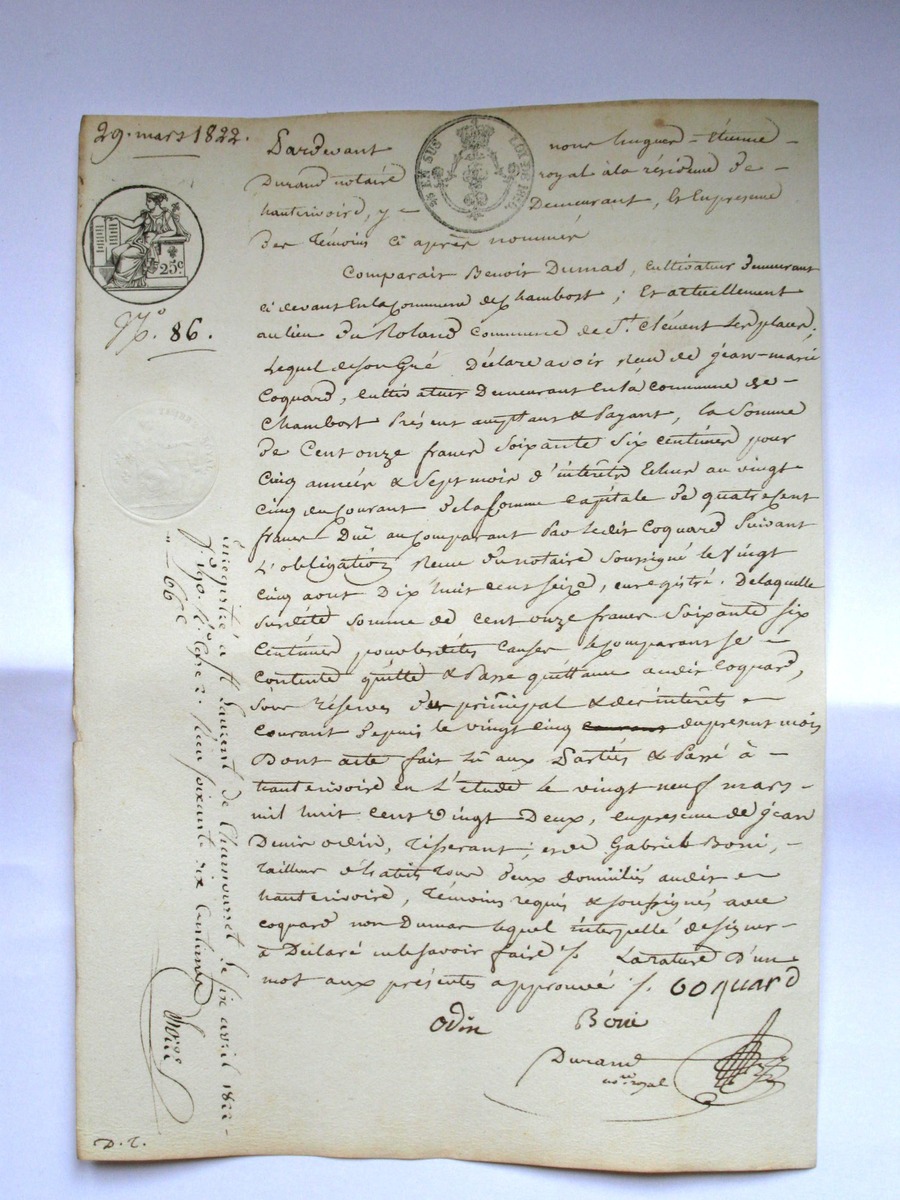 29. mars 1822.
Pardevant nous hugues - Étienne -
Durand notaire royal à la résidence de -
hauterivoire, y - Demeurant, Et En presence
Des Témoins Ci après nommés
EN SUS
25c
N.o 86.
Comparait Benoit Dumas, Cultivateur demeurant
ci devant En la Commune de Chambost ; Et actuellement
au lieu Du Roland Commune de St. Clément Les places;
Lequel de son Gré Déclare avoir Reçu de jean-marie
Coquard, Cultivateur Demeurant En la Commune de -
Chambost Présent acceptant & Payant, la Somme
De Cent onze francs Soixante Six Centimes pour
Cinq années & Sept mois d'intérêts Echus au vingt
Cinq du Courant De la Somme Capitale De quatre cent
francs Duë au Comparant Par Le dit Coquard Suivant
L'obligation Reçue Du notaire Soussigné le Vingt
Cinq aout Dix huit cent seize, enregistré. De laquelle
Susdite Somme de Cent onze francs Soixante Six
Centimes pour les dites Causes le Comparant Se -
Contente quitte & Passe quittance audit Coquard,
Sous réserves Du principal & des intérêts -
Courant Depuis le vingt Cinq du present mois
Dont acte fait lû aux Parties & Passé à -
hauterivoire en L'étude le vingt neuf mars -
mil huit Cent Vingt Deux, En presence de jean
Denis odin, Tisserant ; et de Gabriel Boni, -
Tailleur d'habits Tous Deux domiciliés audit -
hauterivoire, Témoins requis & soussignés avec
Coquard non Dumas lequel interpellé de signer -
à Déclaré ne le Savoir faire /. La rature D'un
mot aux présentes approuvé /. COQUARD
Odin Boni
Durand
no.re royal
Enregistré à St. Laurent de Chamousset le six avril 1822 -
f.o 190. soixante six Centimes
66 c
D. T.